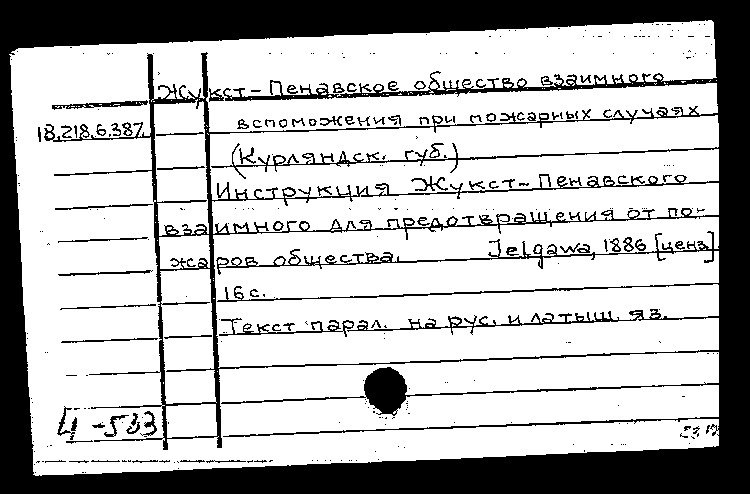 Жукст-Пенавское общество взаимного
18.218.6.387. вспоможения при пожарных случаях
(Курляндск. губ.)
Инструкция Жукст-Пенавского
взаимного для предотвращения от по-
жаров общества. Jelgawa, 1886 [ценз]
16 с.
Текст парал. на рус. и латыш. яз.
Ц-533